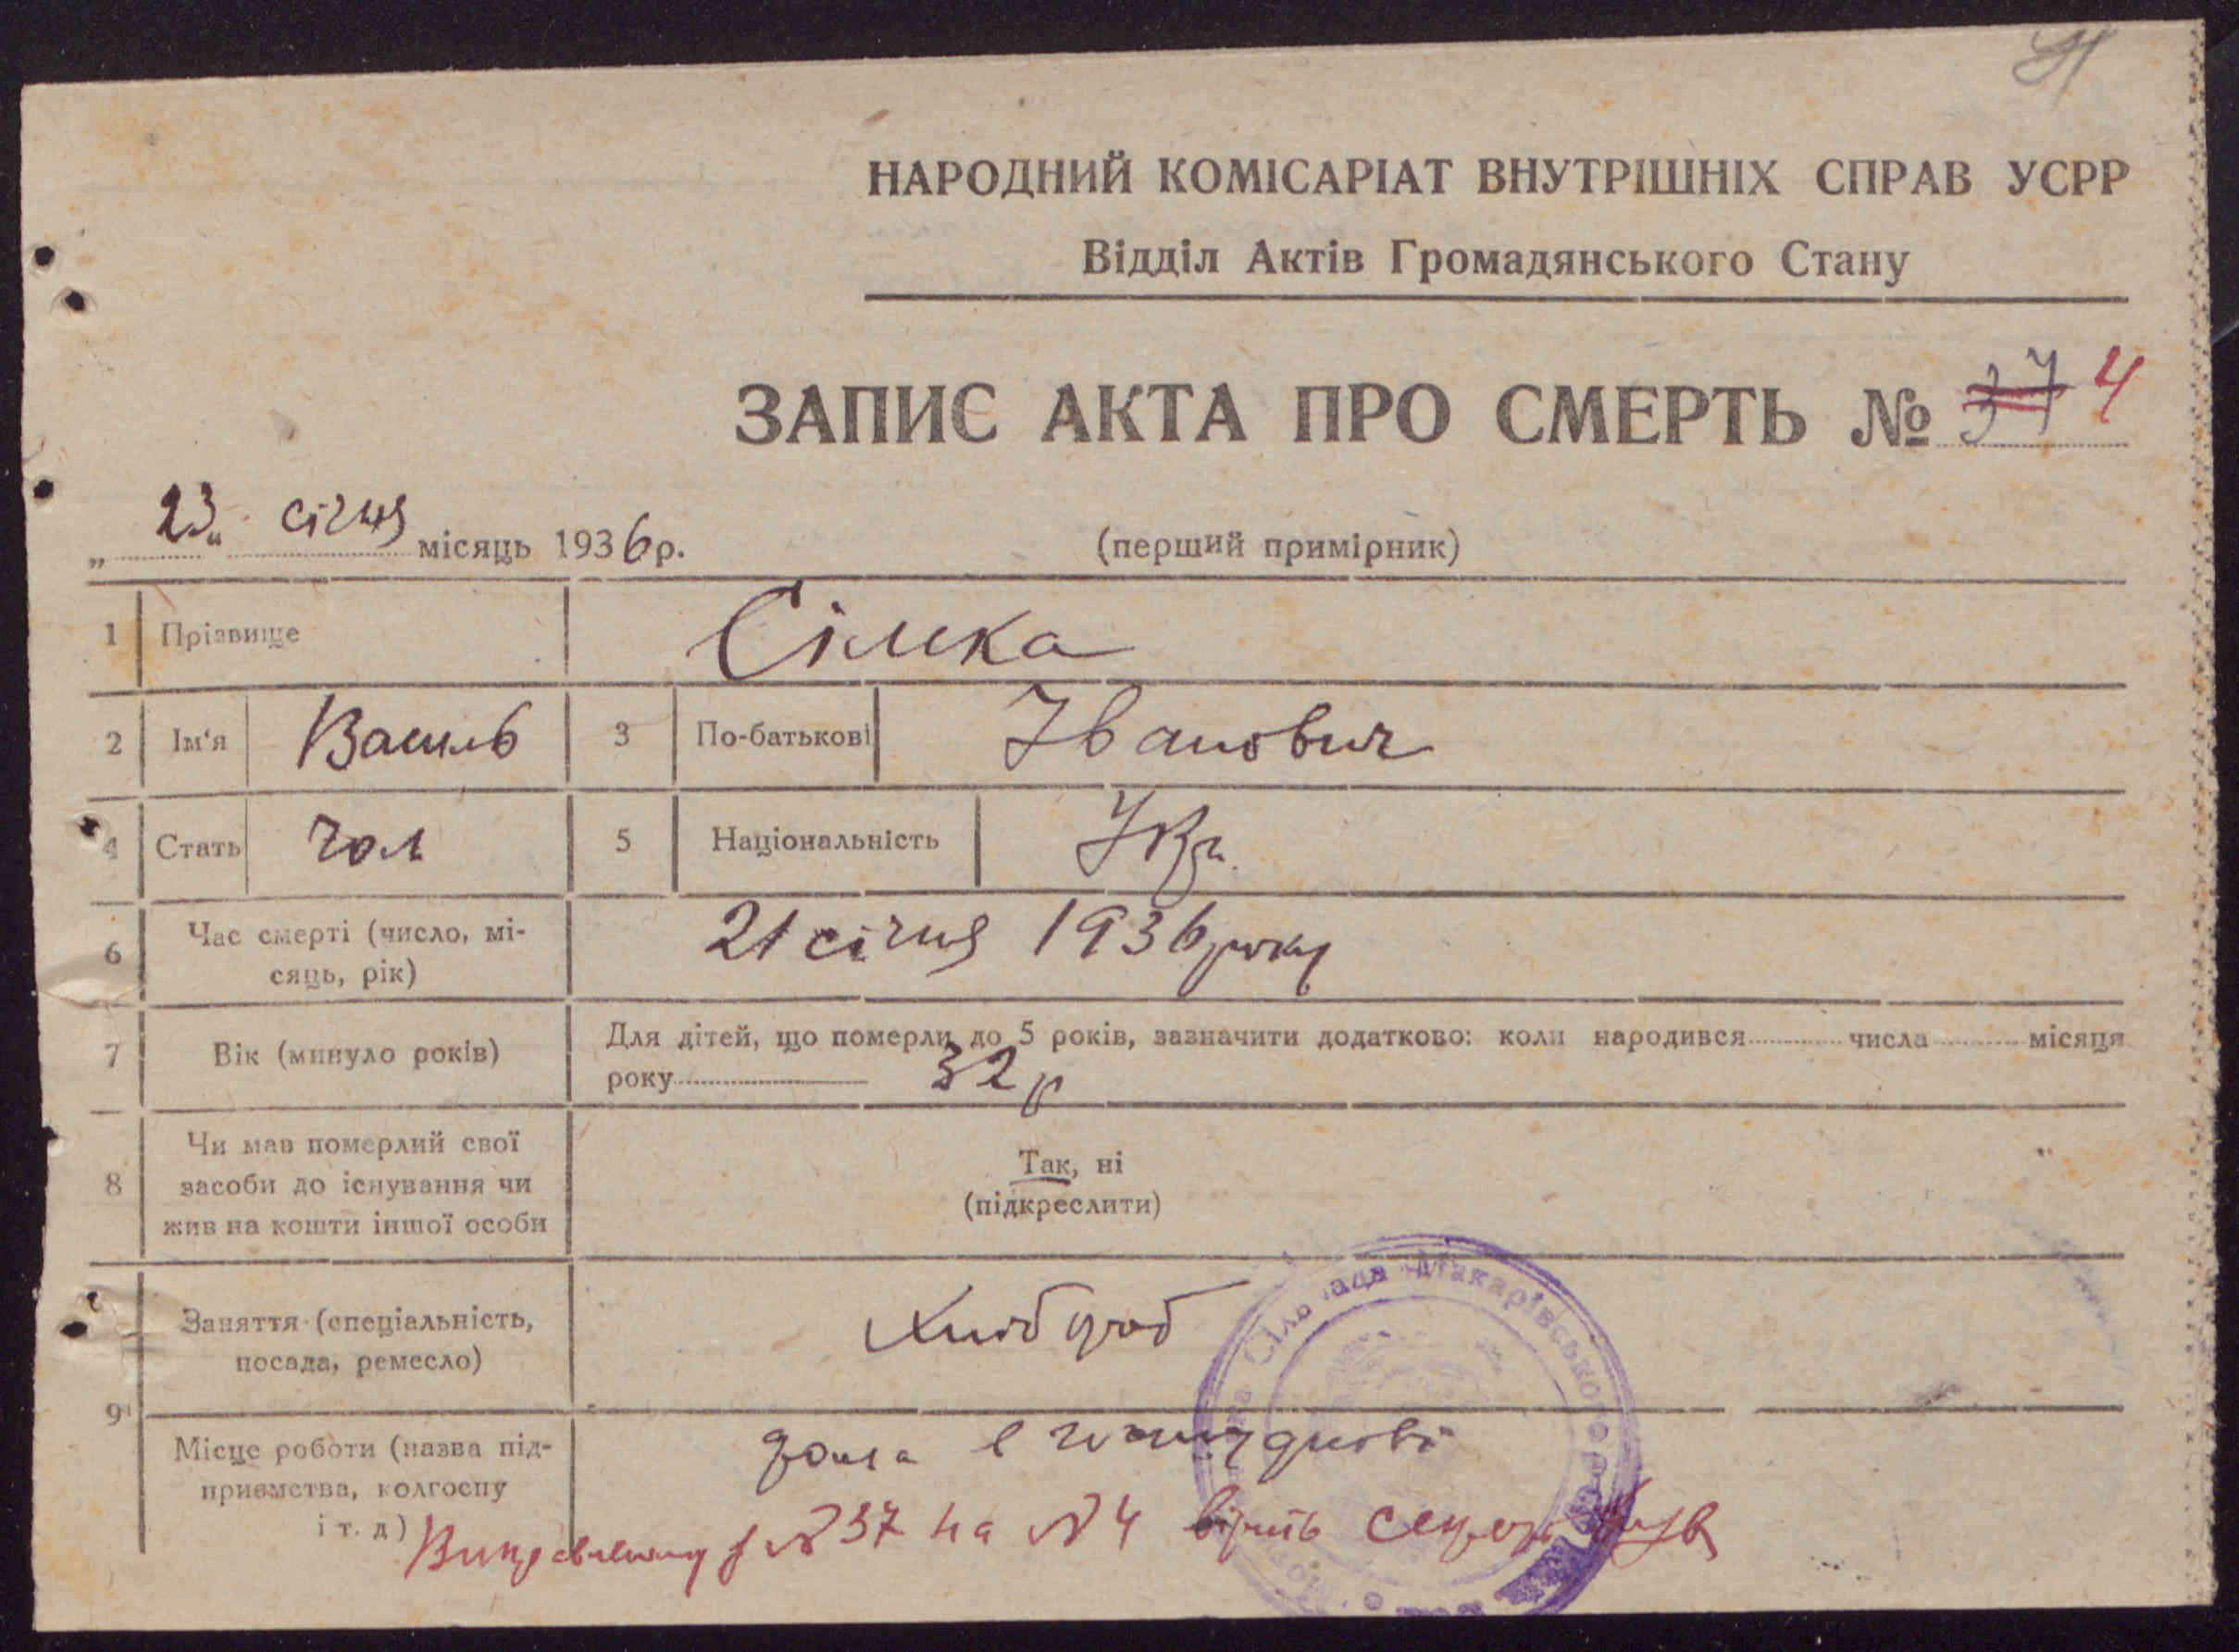 НАРОДНИЙ КОМІСАРІАТ ВНУТРІШНІХ СПРАВ УСРР
Відділ Актів Громадянського Стану
ЗАПИС АКТА ПРО СМЕРТЬ № 37 4
„23“ січня місяць 1936 р.
(перший примірник)
1 Прізвище Сімка
2 Ім'я Василь 3 По-батькові Іванович
4 Стать чол 5 Національність Укр.
6 Час смерті (число, мі-
сяць, рік) 21 січня 1936 року
7 Вік (минуло років) Для дітей, що померли до 5 років, зазначити додатково: коли народився числа місяця
року 32 р
8 Чи мав померлий свої
засоби до існування чи
жив на кошти іншої особи
Так, ні
(підкреслити)
9 Заняття (спеціальність,
посада, ремесло) Хлібороб
Місце роботи (назва під-
приємства, колгоспу
і т. д)
дома в
Виправленому з № 37 на № 4 вірить секретар
Сільрада Макарівського